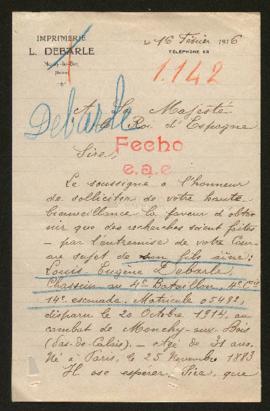 IMPRIMERIE
L. DEBARLE
le 16 Février 1916
TÉLÉPHONE 63
1.142
Debarle
A Sa Majesté
le Roi d'Espagne
Fecho
e.a.c
Sire,
Le soussigné a l'honneur
de solliciter de votre haute
bienveillance la faveur d'obte-
nir que des recherches soient faites
- par l'entremise de votre Cour -
au sujet de son fils aîné:
Louis Eugène Debarle,
Chasseur au 4e Bataillon, 4e Cie
14e escouade, Matricule 05492,
disparu le 20 Octobre 1914, au
combat de Monchy-aux-Bois
(Pas-de-Calais). - Agé de 31 ans.
Né à Paris, le 25 Novembre 1883
Il ose espérer, Sire, que